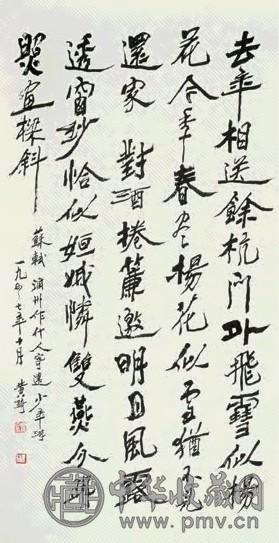 去年相送餘杭門外飛雪似楊
花今年春尽楊花似雪猶不見
還家 對酒捲簾邀明月風露
透窗紗恰似姮娥憐雙燕分明
照畫樑斜
蘇軾 潤州作代人寄遠 少年游
一九 七年十月 黄
中华收藏网
www.pmv.cn